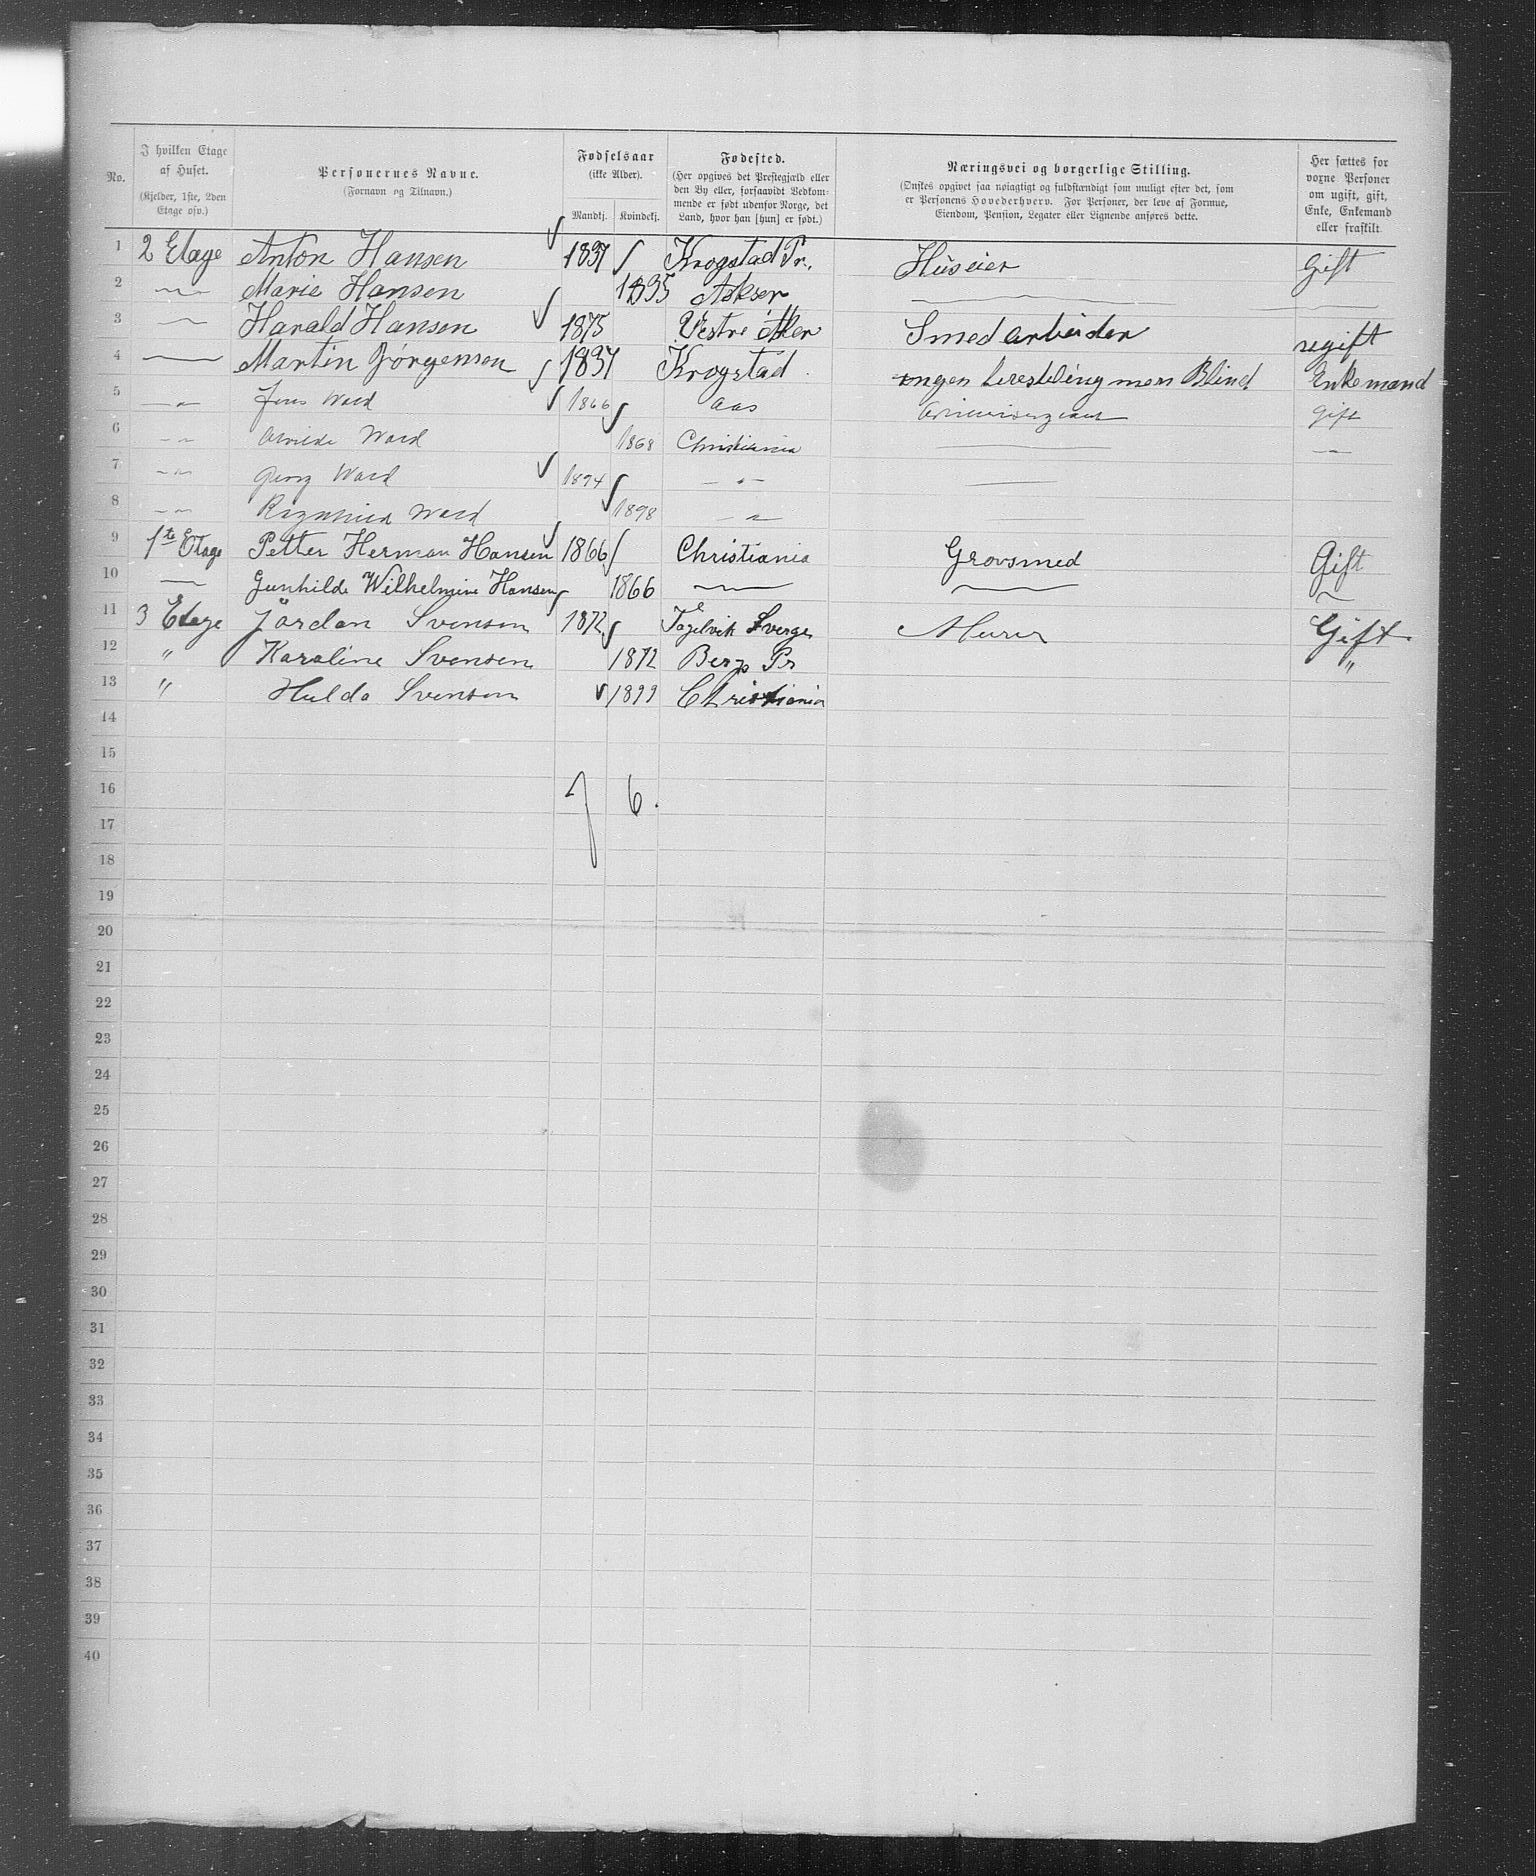 No.
I hvilken Etage af Huset.
(Kjelder, 1ste, 2den Etage osv.)
Personernes Navne.
(Fornavn og Tilnavn.)
Fødselsaar
(ikke Alder).
Mandkj. Kvindekj.
Fødested.
(Her opgives det Præstegjæld eller den By eller, forsaavidt Vedkommende er født udenfor Norge, det Land, hvor han [hun] er født.)
Næringsvei og borgerlige Stilling.
(Ønskes opgivet saa nøiagtigt og fuldstændigt som muligt efter det, som er Personens Hovederhverv. For Personer, der leve af Formue, Eiendom, Pension, Legater eller Lignende anføres dette.
Her sættes for voxne Personer om ugift, gift, Enke, Enkemand eller fraskilt.
1 2 Etage Anton Hansen 1837 Krogstad Pr. Huseier Gift
2 Marie Hansen 1835 Asker
3 Harald Hansen 1875 Vestre Aker Smed arbeider ugift
4 Martin Jørgensen 1837 Krogstad Blind Enkemand
5 — " — Jens Ward 1866 Aas Gift
6 — " — Ward 1868 Christiania — " —
7 — " — Georg Ward 1894 — " —
8 — " — Ward 1898 — " —
9 1te Etage Petter Herman Hansen 1866 Christiania Grovsmed Gift
10 Gunhilde Wilhelmine Hansen 1866
11 3 Etage Jördan Svensen 1872 Sverge Murer Gift
12 " Karoline Svensen 1872 Berg Pr "
13 " Hulda Svensen 1899 Christiania
14
15
16 7 6.
17
18
19
20
21
22
23
24
25
26
27
28
29
30
31
32
33
34
35
36
37
38
39
40